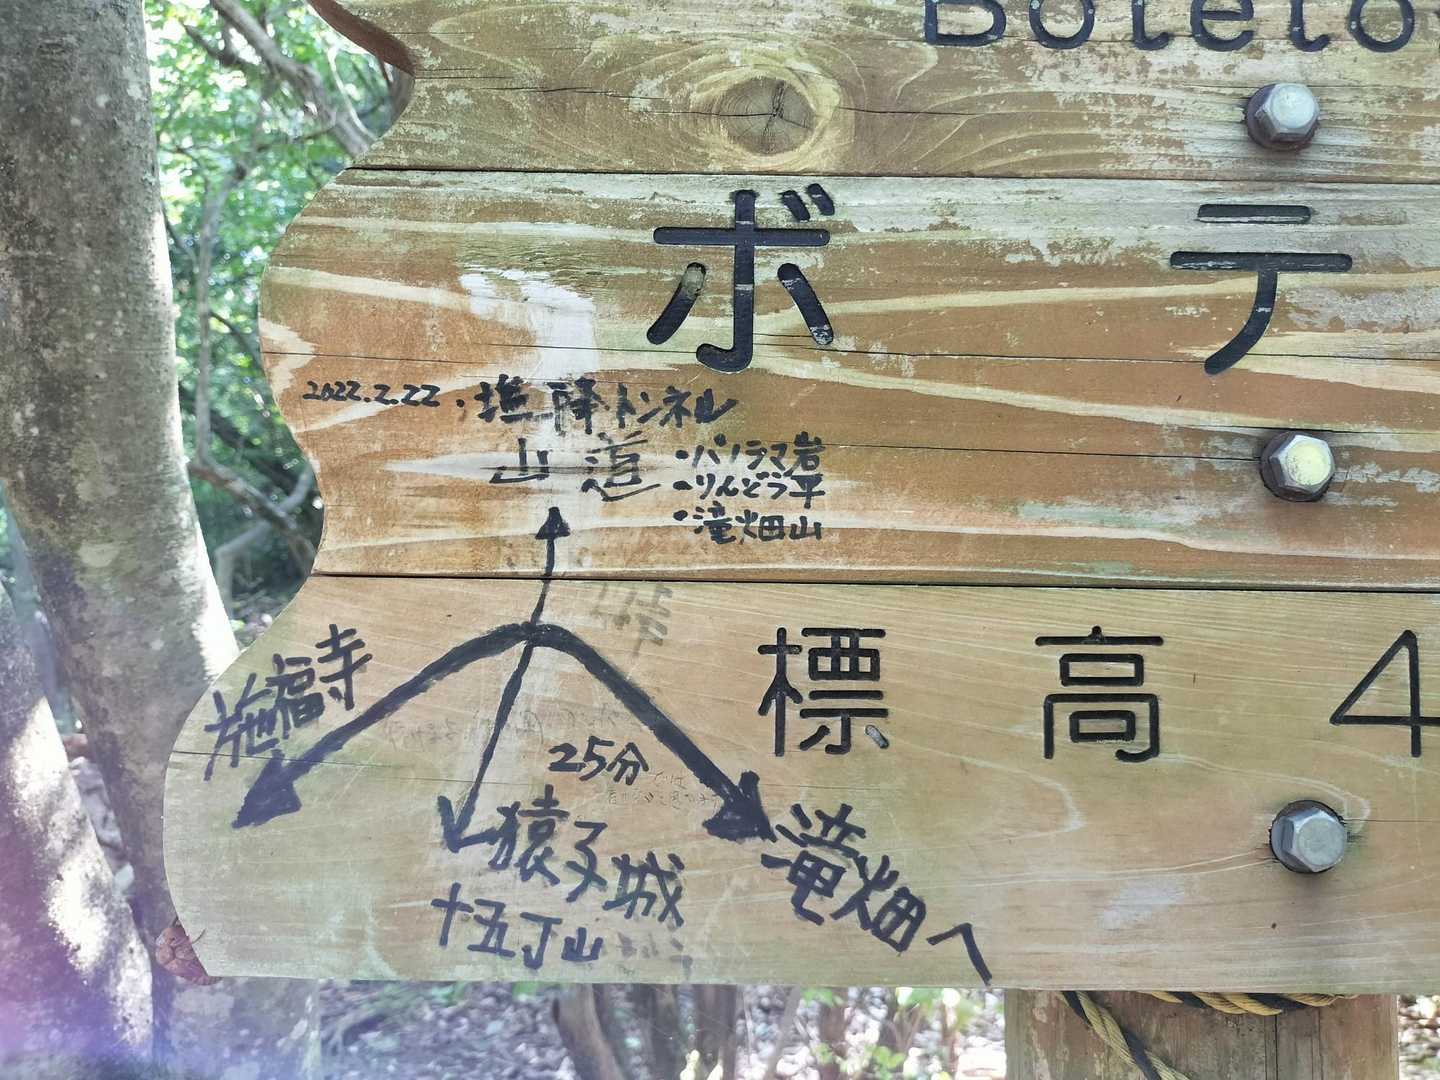 Boteto
ボテ
2022.2.22.塩降トンネル
山道
・パノラマ岩
・りんどう平
・滝畑山
標高4
施福寺
25分
猿子城
十五丁山
滝畑へ